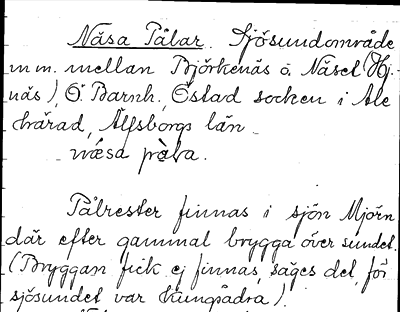 Näsa Pålar. Sjösundområde
m m. mellan Björkenäs o. Näset (Hj.
näs), Ö. Barnh., Östad socken i Ale
härad, Älfsborgs län.
næ̀sa på̱la.
Pålrester finnas i sjön Mjörn
där efter gammal brygga över sundet.
(Bryggan fick ej finnas, säges det, för
sjösundet var kungsådra).